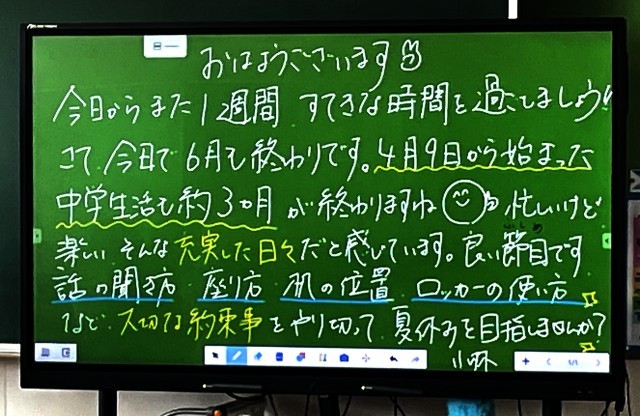 おはようございます
今日からまた1週間 すてきな時間を過ごしましょう!!
さて、今日で6月も終わりです。4月9日から始まった
中学生活も約3ヵ月が終わりますね 忙しいけど
楽しい そんな充実した日々だと感じています。良い節目です
話の聞き方 座り方 机の位置 ロッカーの使い方
など、大切な約束事をやり切って、夏休みを目指しませんか?